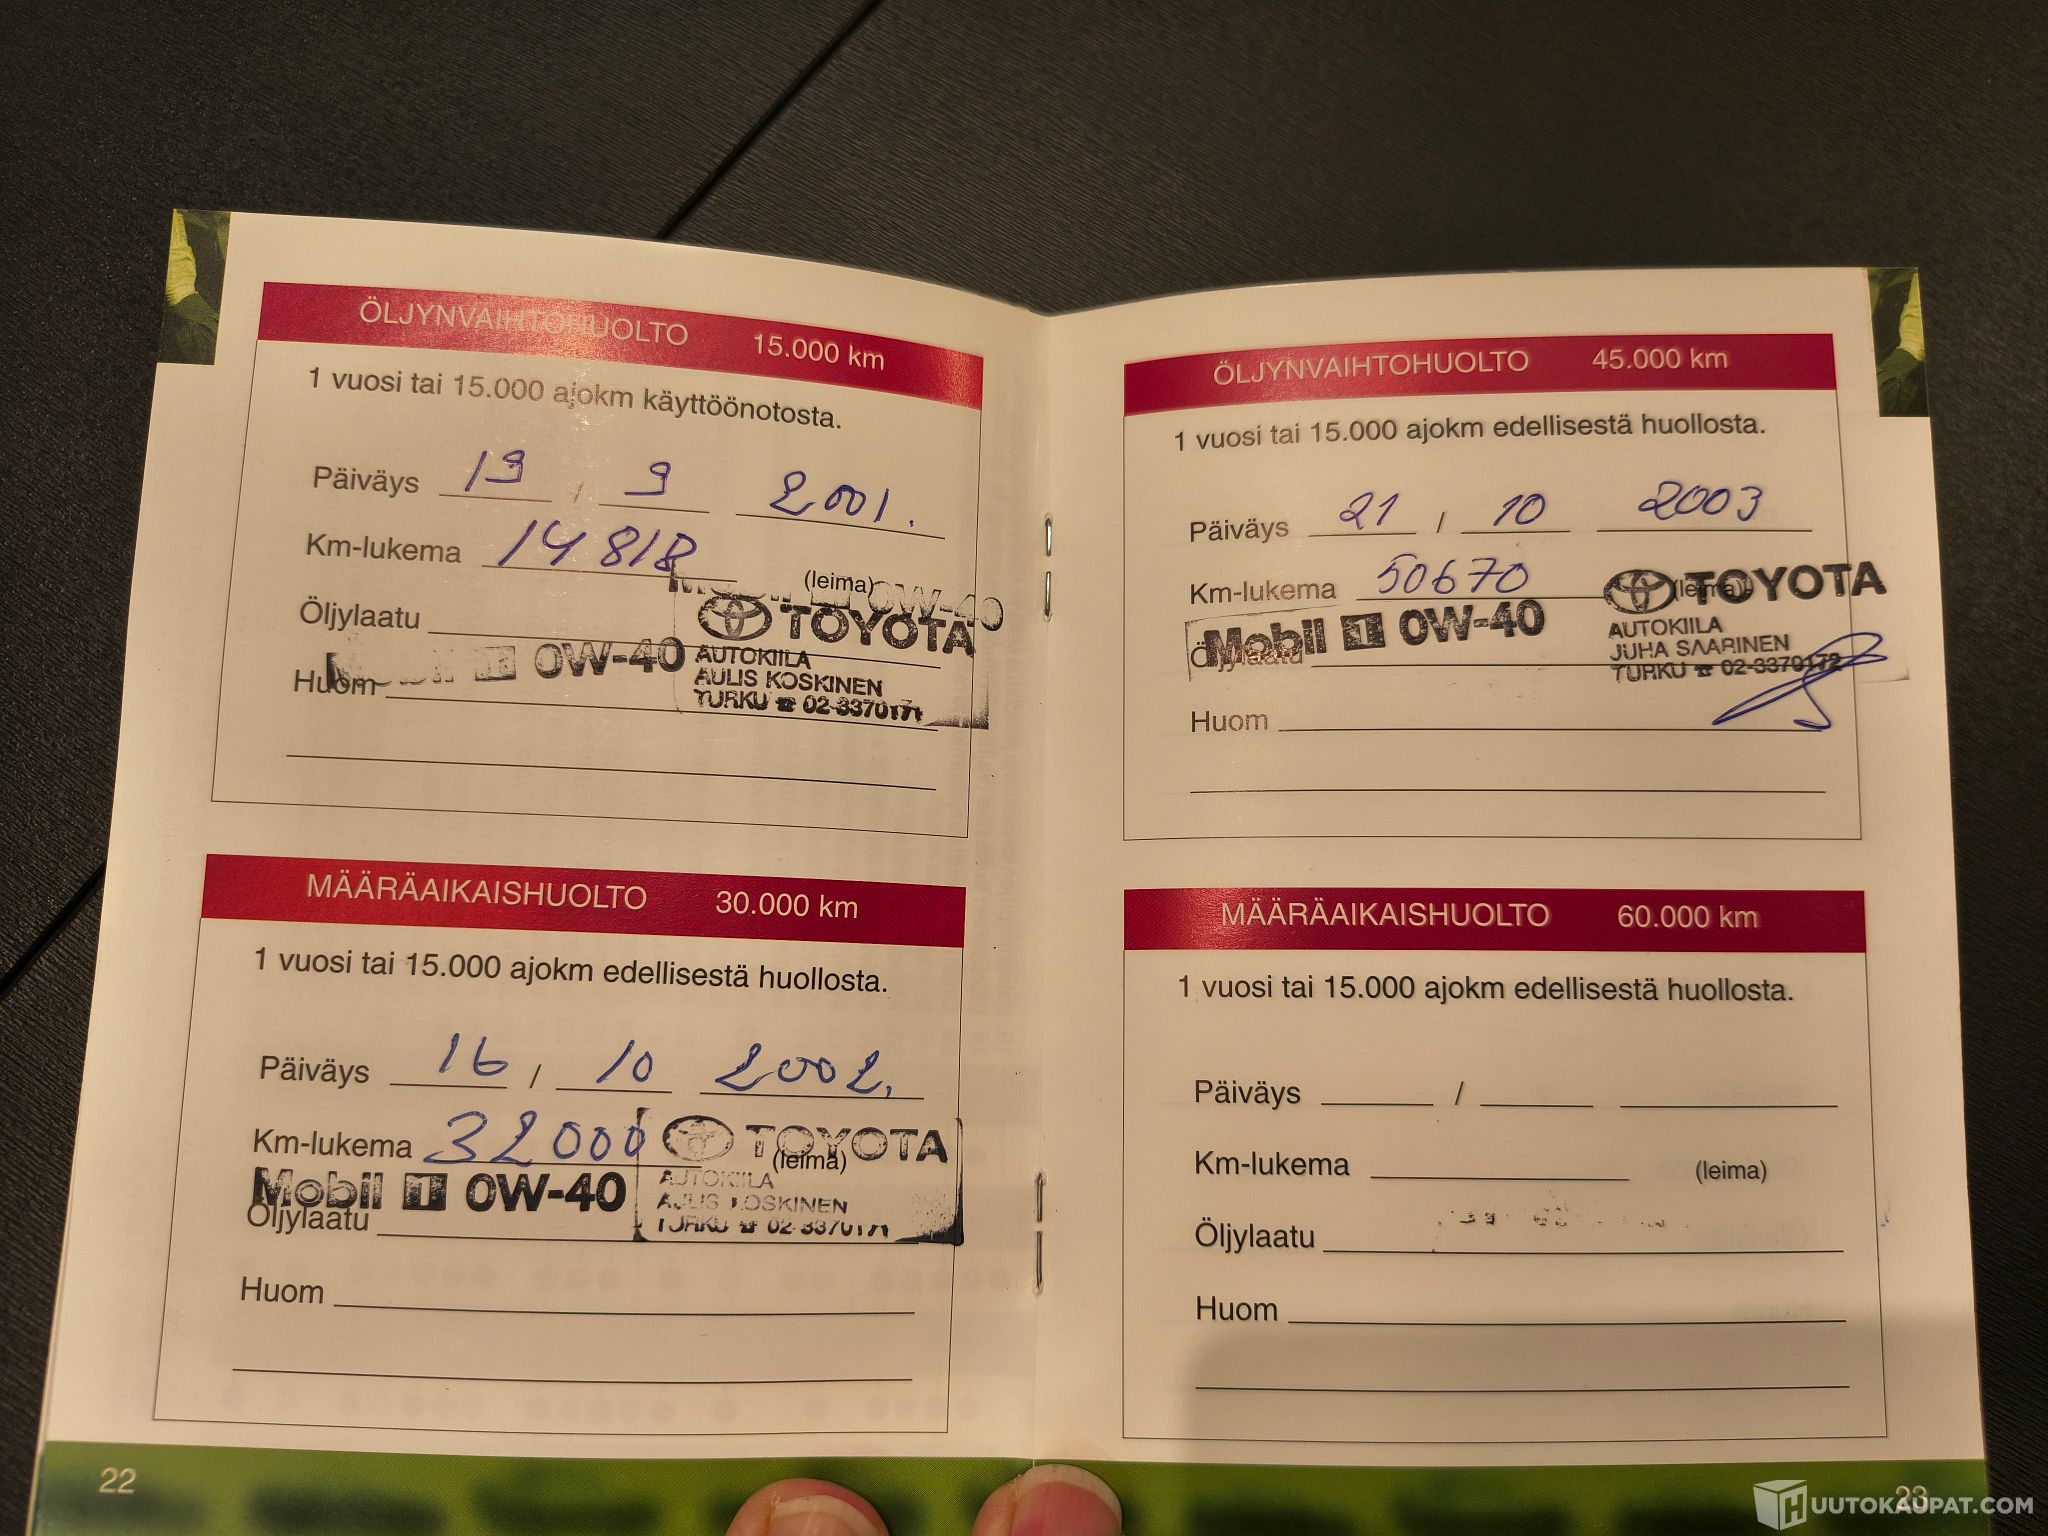 ÖLJYNVAIHTOHUOLTO 15.000 km
1 vuosi tai 15.000 ajokm käyttöönotosta.
Päiväys 19 / 9 2001.
Km-lukema 14818
(leima)
Mobil 1 0W-40
Öljylaatu
TOYOTA
Mobil 1 0W-40
AUTOKIILA
Huom
AULIS KOSKINEN
TURKU ☎ 02-3370171
MÄÄRÄAIKAISHUOLTO 30.000 km
1 vuosi tai 15.000 ajokm edellisestä huollosta.
Päiväys 16 / 10 2002.
Km-lukema 32000
TOYOTA
(leima)
Mobil 1 0W-40
AUTOKIILA
AULIS KOSKINEN
Öljylaatu
TURKU ☎ 02-3370171
Huom
22
ÖLJYNVAIHTOHUOLTO 45.000 km
1 vuosi tai 15.000 ajokm edellisestä huollosta.
Päiväys 21 / 10 2003
Km-lukema 50670
(leima)
TOYOTA
Mobil 1 0W-40
AUTOKIILA
JUHA SAARINEN
Öljylaatu
TURKU ☎ 02-3370172
Huom
MÄÄRÄAIKAISHUOLTO 60.000 km
1 vuosi tai 15.000 ajokm edellisestä huollosta.
Päiväys /
Km-lukema (leima)
Öljylaatu
Huom
23
HUUTOKAUPAT.COM